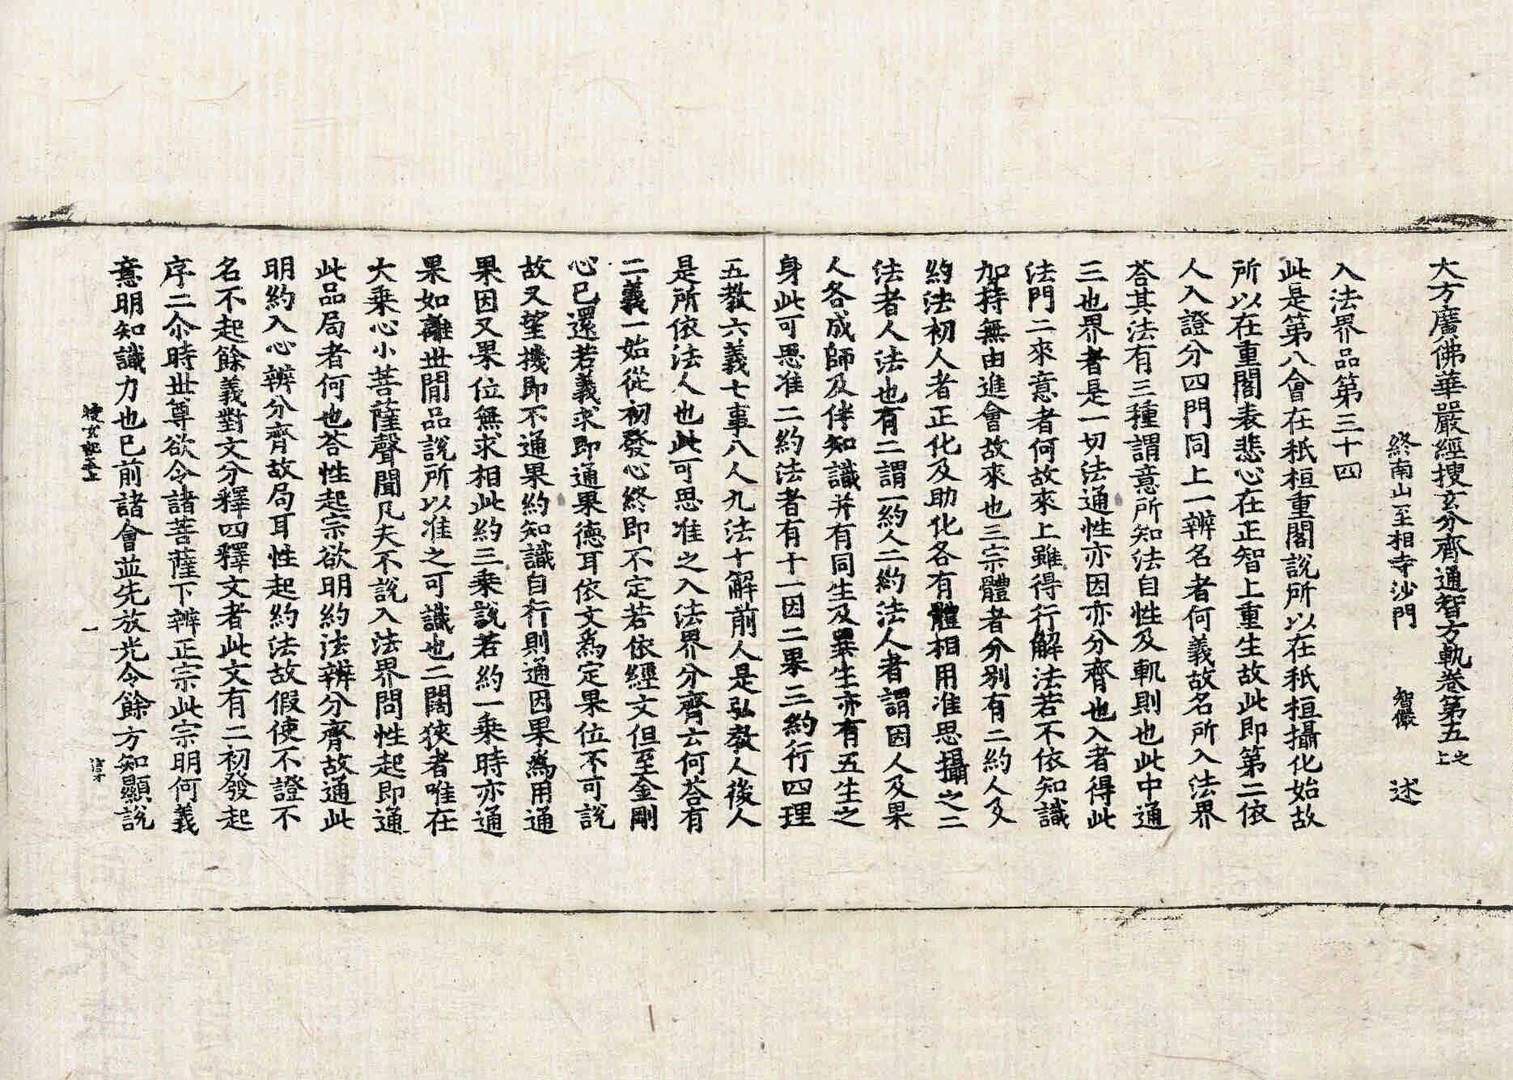 大方廣佛華嚴經搜玄分齊通智方軌卷第五之上
終南山至相寺沙門 智儼 述
入法界品第三十四
此是第八會在祇桓重閣說所以在祇桓攝化始故
所以在重閣表悲心在正智上重生故此即第二依
人入證分四門同上一辨名者何義故名所入法界
荅其法有三種謂意所知法自性及軌則也此中通
三也界者是一切法通性亦因亦分齊也入者得此
法門二來意者何故來上雖得行解法若不依知識
加持無由進會故來也三宗體者分別有二約人及
約法初人者正化及助化各有體相用准思攝之二
法者人法也有二謂一約人二約法人者謂因人及果
人各成師及伴知識并有同生及異生亦有五生之
身此可思准二約法者有十一因二果三約行四理
五教六義七事八人九法十解前人是弘教人後人
是所依法人也此可思准之入法界分齊云何荅有
二義一始從初發心終即不定若依經文但至金剛
心已還若義求即通果德耳依文爲定果位不可說
故又望機即不通果約知識自行則通因果爲用通
果因又果位無求相此約三乘說若約一乘時亦通
果如離世間品說所以准之可識也二闊狹者唯在
大乘心小菩薩聲聞凡夫不說入法界問性起即通
此品局者何也荅性起宗欲明約法辨分齊故通此
明約入心辨分齊故局耳性起約法故假使不證不
名不起餘義對文分釋四釋文者此文有二初發起
序二尒時世尊欲令諸菩薩下辨正宗此宗明何義
意明知識力也已前諸會並先放光令餘方知顯說
搜玄記五上 一